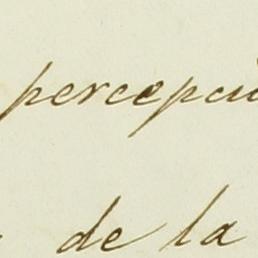 percepci
de la